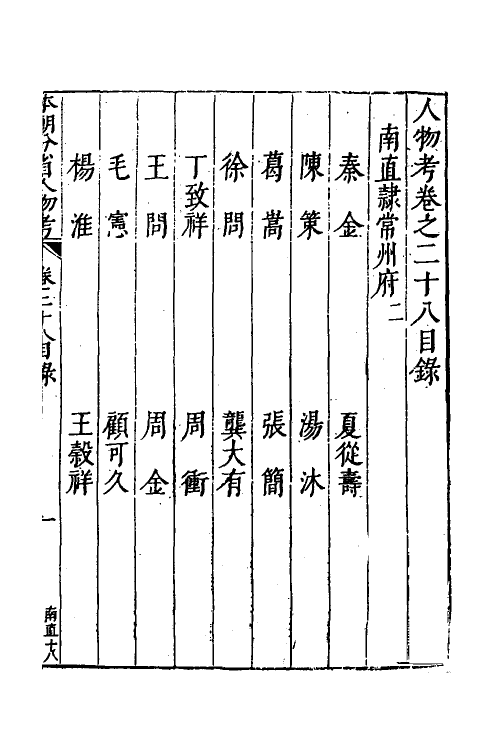 人物考卷之二十八目錄
南直隸常州府二
秦金 夏從壽
陳策 湯沐
葛嵩 張簡
徐問 龔大有
丁致祥 周衝
王問 周金
毛憲 顧可久
楊淮 王縠祥
本朝分省人物考 卷二十八目錄 一 南直十八